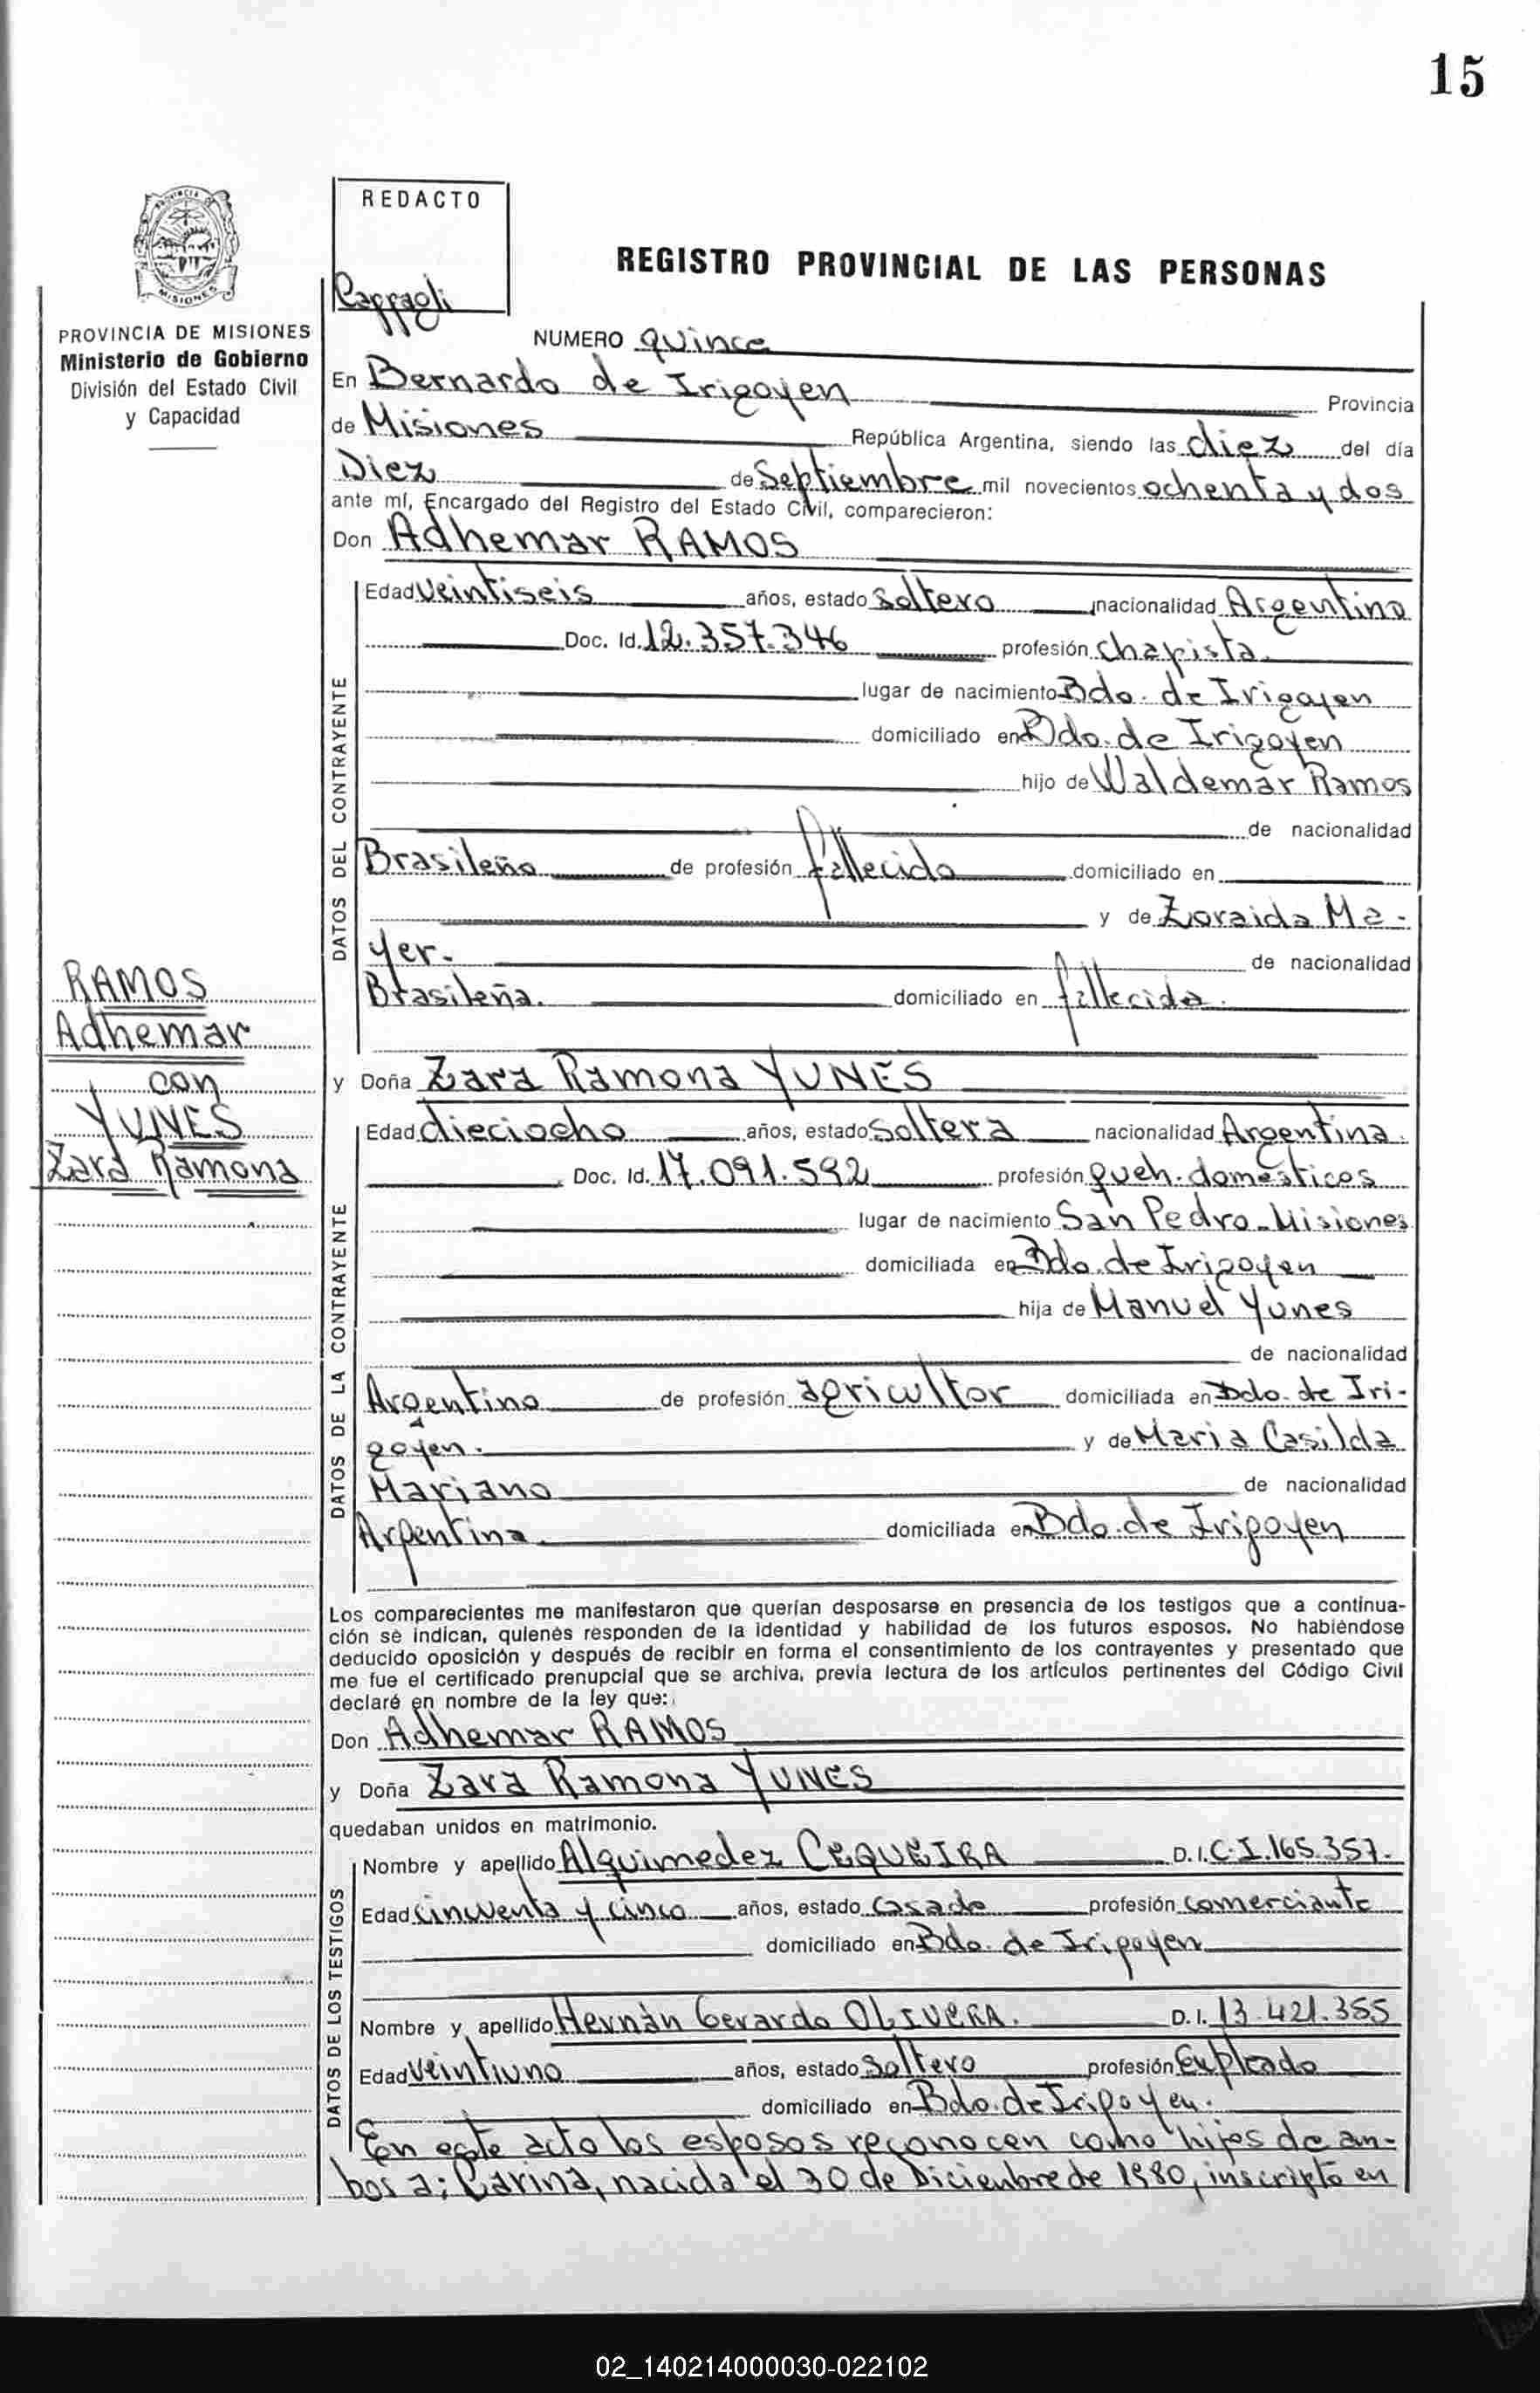 15
REDACTO
REGISTRO PROVINCIAL DE LAS PERSONAS
PROVINCIA DE MISIONES
Ministerio de Gobierno
División del Estado Civil
y Capacidad
NUMERO quince
En Bernardo de Irigoyen Provincia
de Misiones República Argentina, siendo las diez del día
Diez de Septiembre mil novecientos ochenta y dos
ante mí, Encargado del Registro del Estado Civil, comparecieron:
Don Adhemar RAMOS
DATOS DEL CONTRAYENTE
Edad veintiseis años, estado soltero nacionalidad Argentino
Doc. Id. 12.357.346 profesión chapista.
lugar de nacimiento Bdo. de Irigoyen
domiciliado en Bdo. de Irigoyen
hijo de Waldemar Ramos
de nacionalidad
Brasileño de profesión fallecido domiciliado en
y de Zoraida Ma-
yer. de nacionalidad
Brasileña. domiciliado en fallecida.
RAMOS
Adhemar
con
YUNES
Zara Ramona
y Doña Zara Ramona YUNES
DATOS DE LA CONTRAYENTE
Edad dieciocho años, estado soltera nacionalidad Argentina.
Doc. Id. 17.091.592 profesión queh. domesticos
lugar de nacimiento San Pedro-Misiones
domiciliada en Bdo. de Irigoyen
hija de Manuel Yunes
de nacionalidad
Argentino de profesión agricultor domiciliada en Bdo. de Iri-
goyen. y de Maria Casilda
Mariano de nacionalidad
Argentina. domiciliada en Bdo. de Irigoyen
Los comparecientes me manifestaron que querían desposarse en presencia de los testigos que a continua-
ción se indican, quienes responden de la identidad y habilidad de los futuros esposos. No habiéndose
deducido oposición y después de recibir en forma el consentimiento de los contrayentes y presentado que
me fue el certificado prenupcial que se archiva, previa lectura de los artículos pertinentes del Código Civil
declaré en nombre de la ley que:
Don Adhemar RAMOS
y Doña Zara Ramona YUNES
quedaban unidos en matrimonio.
DATOS DE LOS TESTIGOS
Nombre y apellido Alquimedez CEQUEIRA D. I. C.I. 165.357.
Edad cincuenta y cinco años, estado casado profesión comerciante
domiciliado en Bdo. de Irigoyen
Nombre y apellido Hernán Gerardo OLIVERA. D. I. 13.421.355
Edad veintiuno años, estado soltero profesión Empleado
domiciliado en Bdo. de Irigoyen.
En este acto los esposos reconocen como hijos de am-
bos a: Carina, nacida el 30 de Diciembre de 1980, inscripta en
02_140214000030-022102